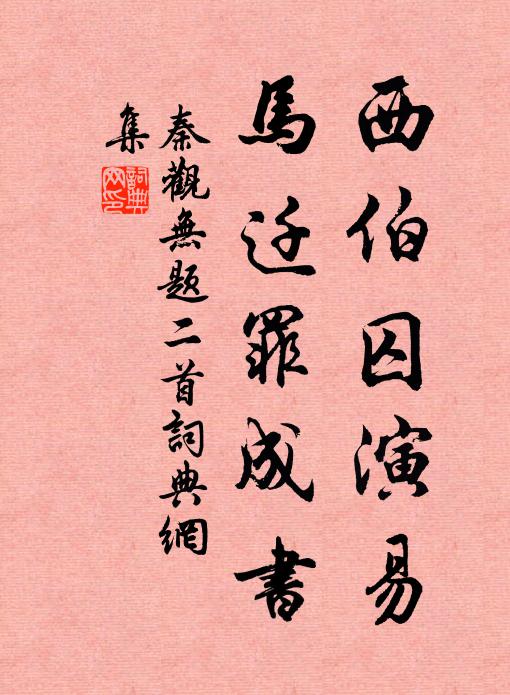 西伯囚演易
馬迁罪成書
秦觀無題二首詞典網
集
詞典
网印